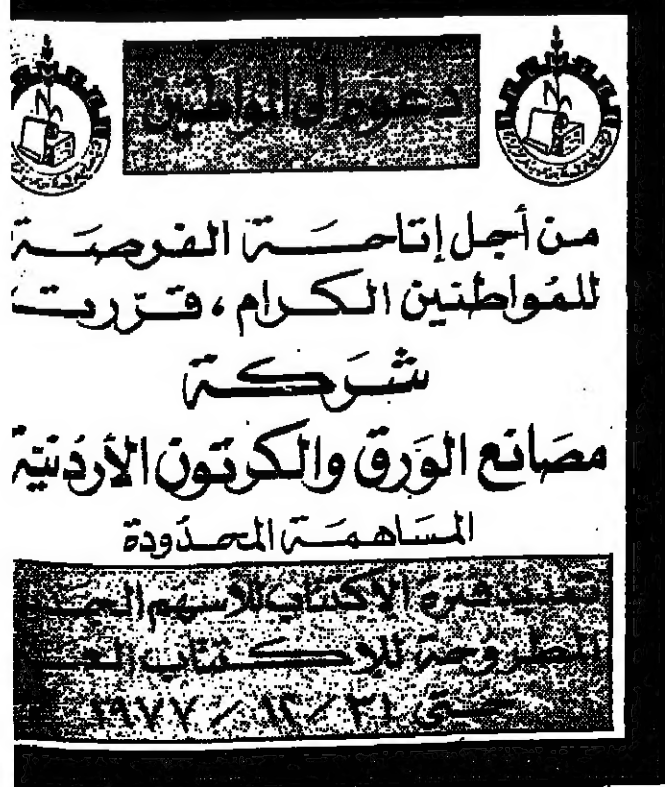 دعوة إلى المواطنين
من أجل إتاحة الفرصة
للمُواطنين الكرام، قرّرت
شركة
مصَانع الوَرق والكرتون الأردُنيّة
المسَاهمَة المحدُودة
تمديد فترة الاكتتاب للأسهم
المطروحة للاكتتاب
حتى ٣١/١٢/١٩٧٧